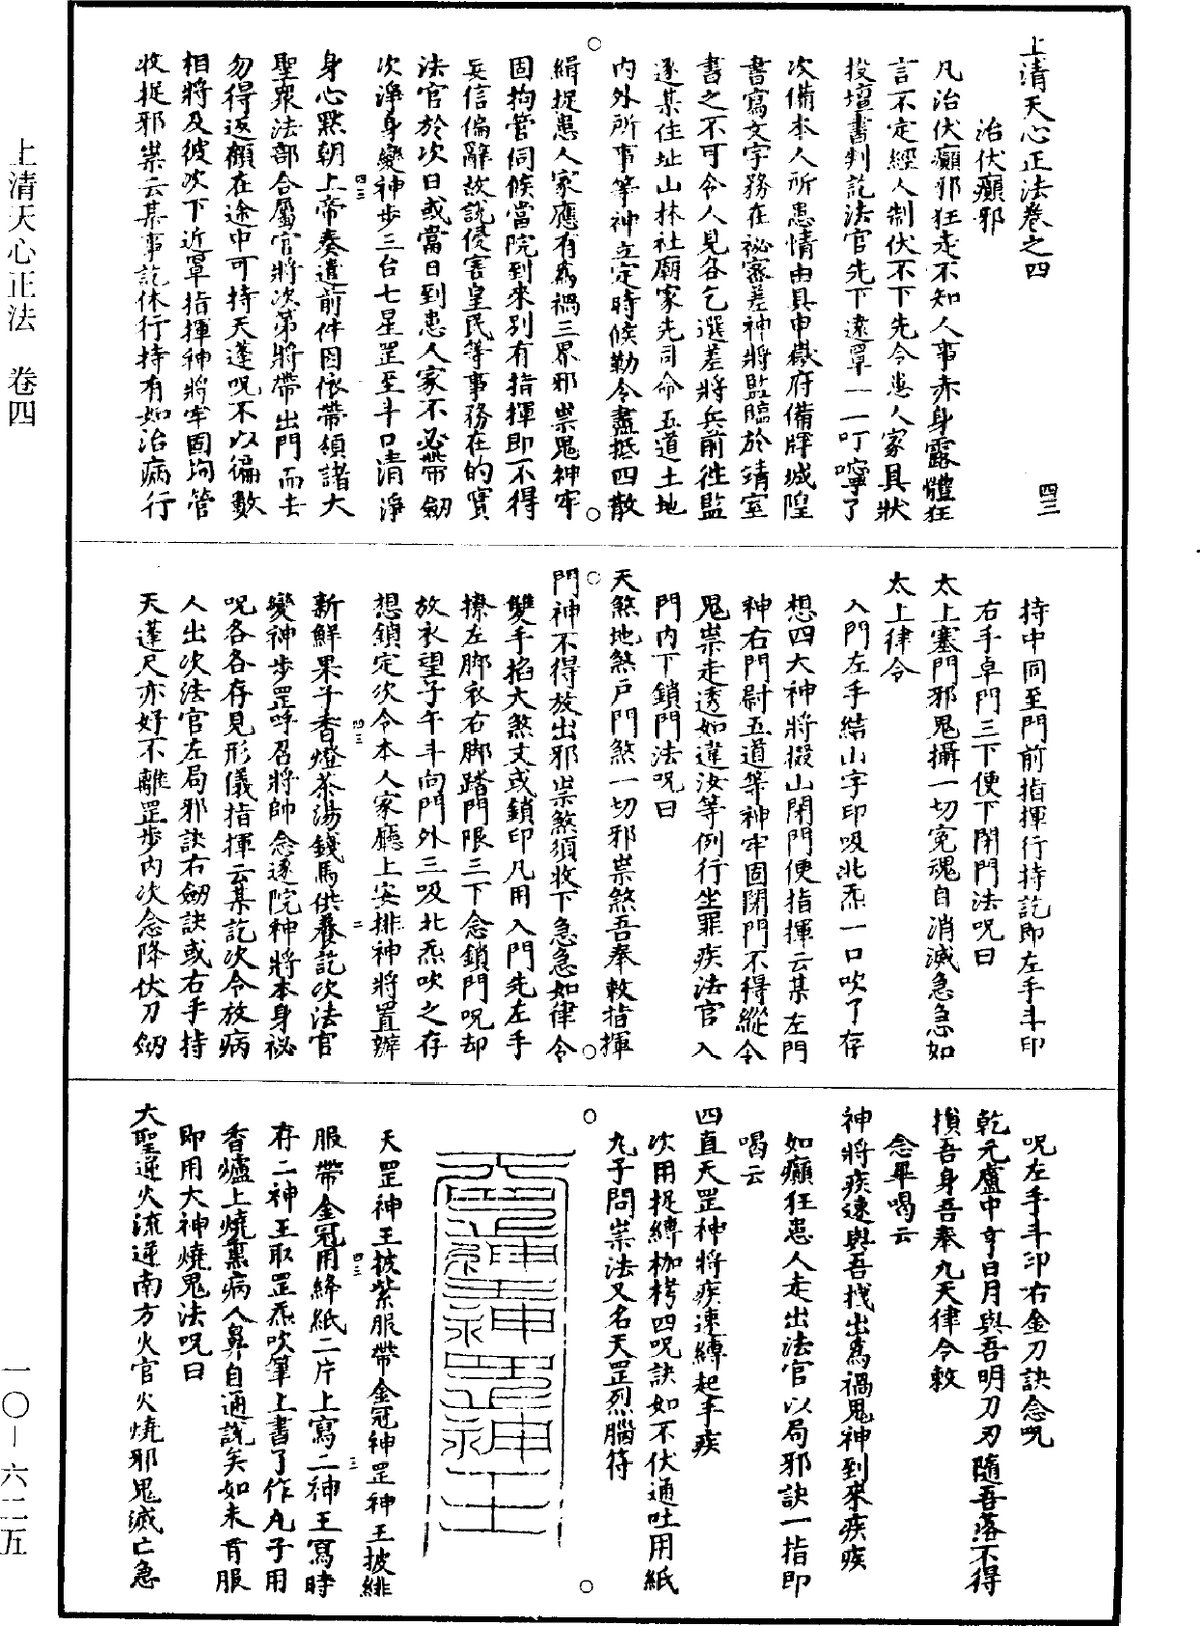 上清天心正法卷之四
四三
治伏癲邪
凡治伏癲邪狂走不知人事赤身露體狂
言不定經人制伏不下先令患人家具狀
投壇書判訖法官先下遠罩一一叮嚀了
次備本人所患情由具申嶽府備牒城隍
書寫文字務在祕密差神將監臨於靖室
書之不可令人見各乞選差將兵前徃監
逐某住址山林社廟家先司命五道土地
內外所事等神立定時候勒令盡抵四散
緝捉患人家應有爲禍三界邪祟鬼神牢
固拘管伺候當院到來別有指揮即不得
妄信偏辭故說侵害皇民等事務在的實
法官於次日或當日到患人家不必帶劒
次淨身變神步三台七星罡至斗口清淨
身心默朝上帝奏遣前件因依帶領諸大
聖衆法部合屬官將次第將帶出門而去
勿得返顧在途中可持天蓬呪不以徧數
相將及彼次下近罩指揮神將牢固拘管
收捉邪祟云某事訖休行持有如治病行
持中同至門前指揮行持訖即左手斗印
右手卓門三下便下閉門法呪曰
太上塞門邪鬼攝一切寃魂自消滅急急如
太上律令
入門左手結山字印吸北炁一口吹了存
想四大神將掇山閉門便指揮云某左門
神右門尉五道等神牢固閉門不得縱令
鬼祟走透如違汝等例行坐罪疾法官入
門內下鎖門法呪曰
天煞地煞戶門煞一切邪祟煞吾奉敕指揮
門神不得放出邪祟煞須收下急急如律令
雙手掐大煞文或鎖印凡用入門先左手
撩左脚衣右脚踏門限三下念鎖門呪却
放衣望子午斗向門外三吸北炁吹之存
想鎖定次令本人家廳上安排神將置辦
新鮮果子香燈茶湯錢馬供養訖次法官
變神步罡呼召將帥念逐院神將本身祕
呪各各存見形儀指揮云某訖次令放病
人出次法官左局邪訣右劒訣或右手持
天蓬尺亦好不離罡步內次念降伏刀劒
呪左手斗印右金刀訣念呪
乾元廬中亨日月與吾明刀刃隨吾落不得
損吾身吾奉九天律令敕
念畢喝云
神將疾速與吾找出爲禍鬼神到來疾疾
如癲狂患人走出法官以局邪訣一指即
喝云
四直天罡神將疾速縛起手疾
次用捉縛枷栲四呪訣如不伏通吐用紙
丸子問祟法又名天罡烈腦符
天罡神王披紫服帶金冠神罡神王披緋
服帶金冠用絳紙二片上寫二神王寫時
存二神王取罡炁吹筆上書了作丸子用
香爐上燒熏病人鼻自通說矣如未肯服
即用大神燒鬼法呪曰
大聖逆火流逆南方火官火燒邪鬼滅亡急
上清天心正法　卷四
一〇－六二五